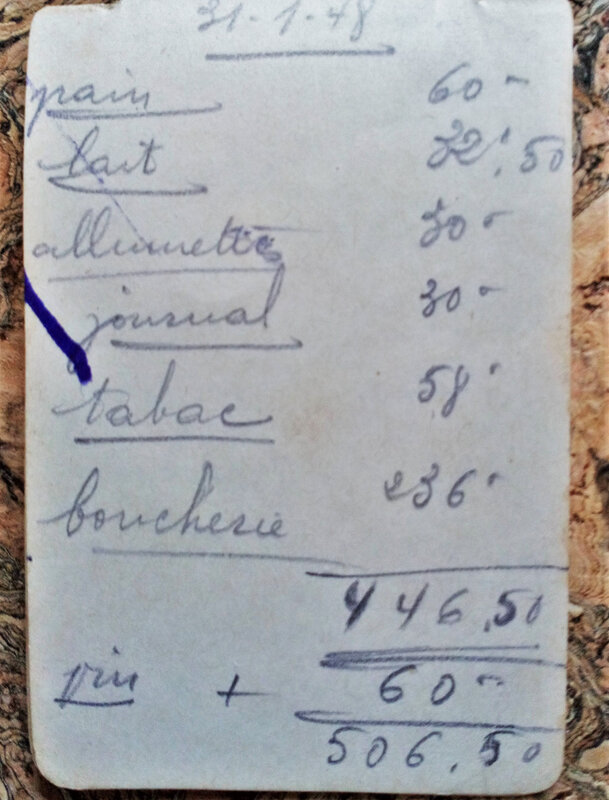 31-1-48
pain 60-
lait 32,50
allumettes 30-
journal 30-
tabac 58-
boucherie 236-
446,50
vin + 60-
506,50